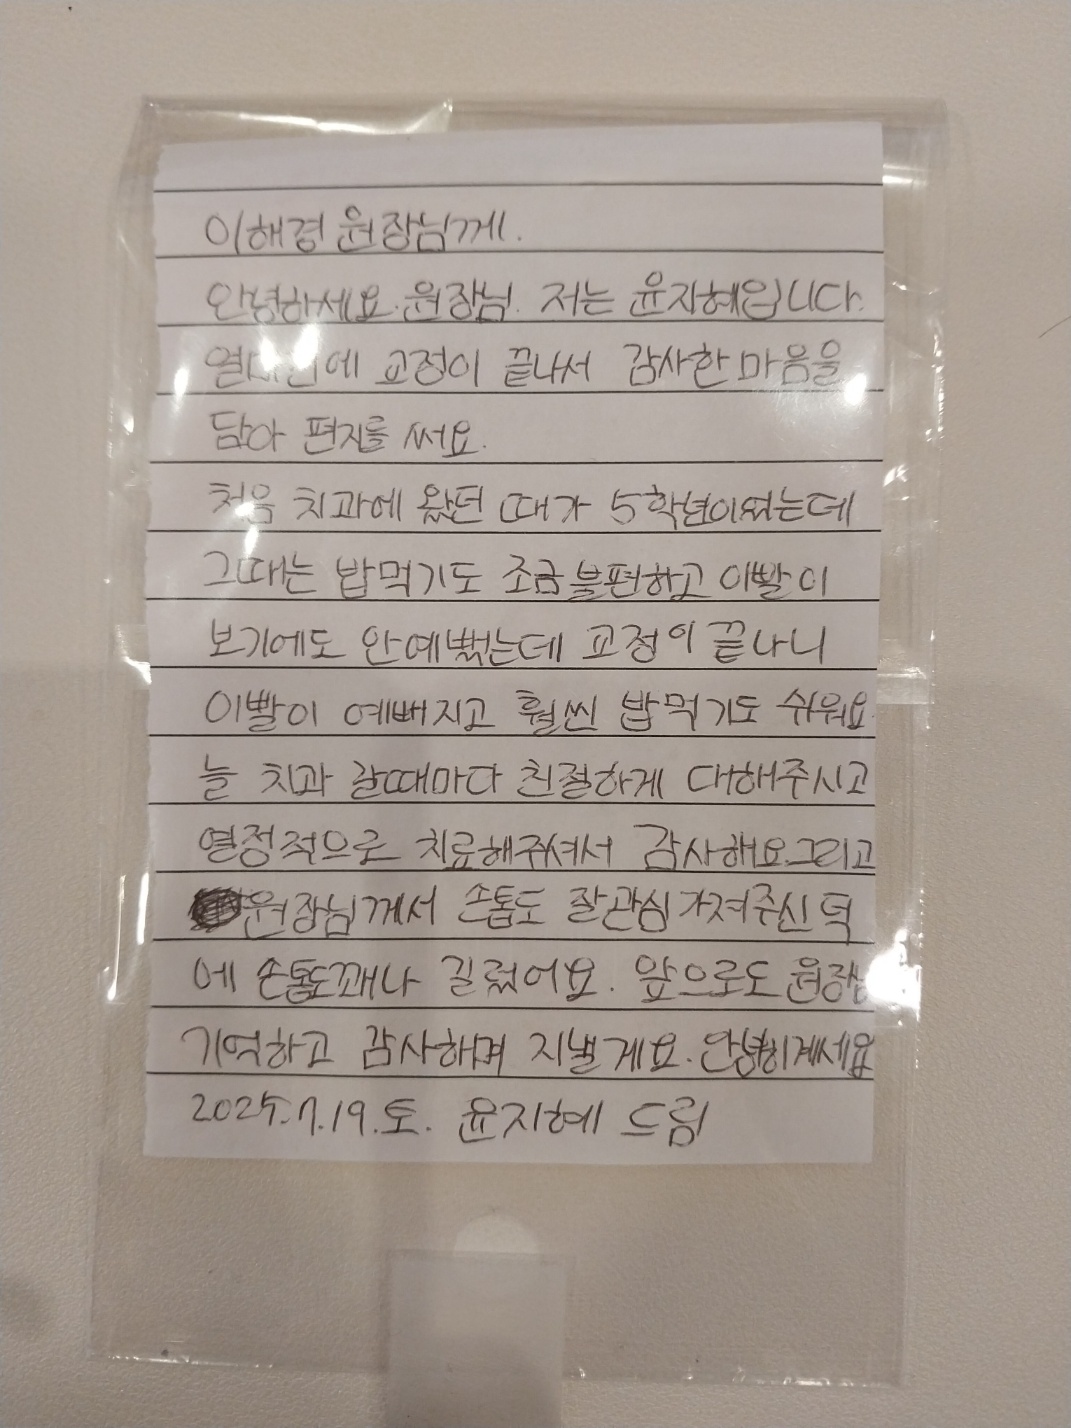 이해경 원장님께.
안녕하세요. 원장님. 저는 윤지혜입니다.
교정이 끝나서 감사한 마음을
담아 편지를 써요.
처음 치과에 왔던 때가 5학년이었는데
그때는 밥먹기도 조금 불편하고 이빨이
보기에도 안예뻤는데 교정이 끝나니
이빨이 예뻐지고 훨씬 밥먹기도 쉬워요
늘 치과 갈때마다 친절하게 대해주시고
열정적으로 치료해주셔서 감사해요.그리고
원장님께서 손톱도 잘관심 가져주신 덕
에 손톱도꽤나 길렀어요. 앞으로도 원장님
기억하고 감사하며 지낼게요. 안녕히계세요
2025.7.19.토. 윤지혜 드림